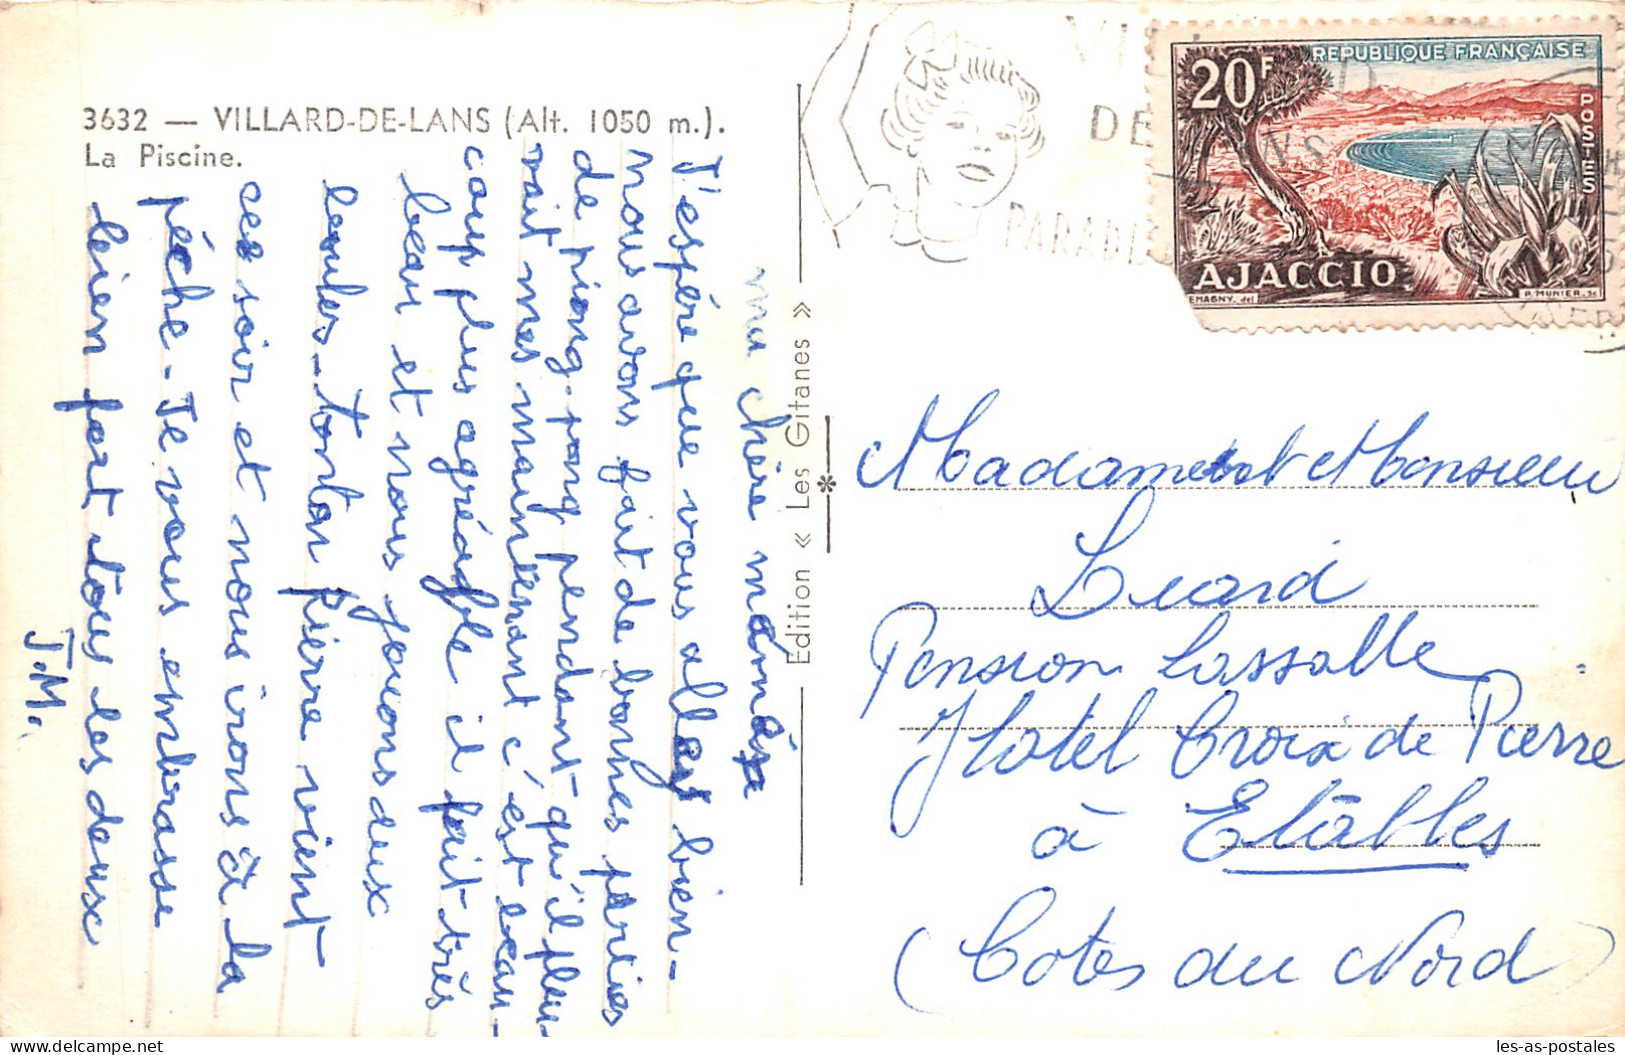 3632 — VILLARD-DE-LANS (Alt. 1050 m.).
La Piscine.
ma chère mámée
J'espére que vous allez bien -
nous avons fait de bonnes parties
de ping-pong pendant qu'il pleu-
vait mes maintenant c'est beau-
coup plus agréable il fait très
beau et nous jouons aux
boules - tonton Pierre vient
ce soir et nous irons à la
pêche - Je vous embrasse
bien fort tous les deux
J.M.
Edition « Les Gitanes »
VILLARD
DE LANS
PARADIS
20F
REPUBLIQUE FRANÇAISE
POSTES
AJACCIO
EMAGNY. del.
P. MUNIER. Sc.
Madame et Monsieur
Liard
Pension Lassalle
Hotel Croix de Pierre
à Etábles
(Côtes du Nord)
les-as-postales
https://www.delcampe.net/Store/les-as-postales